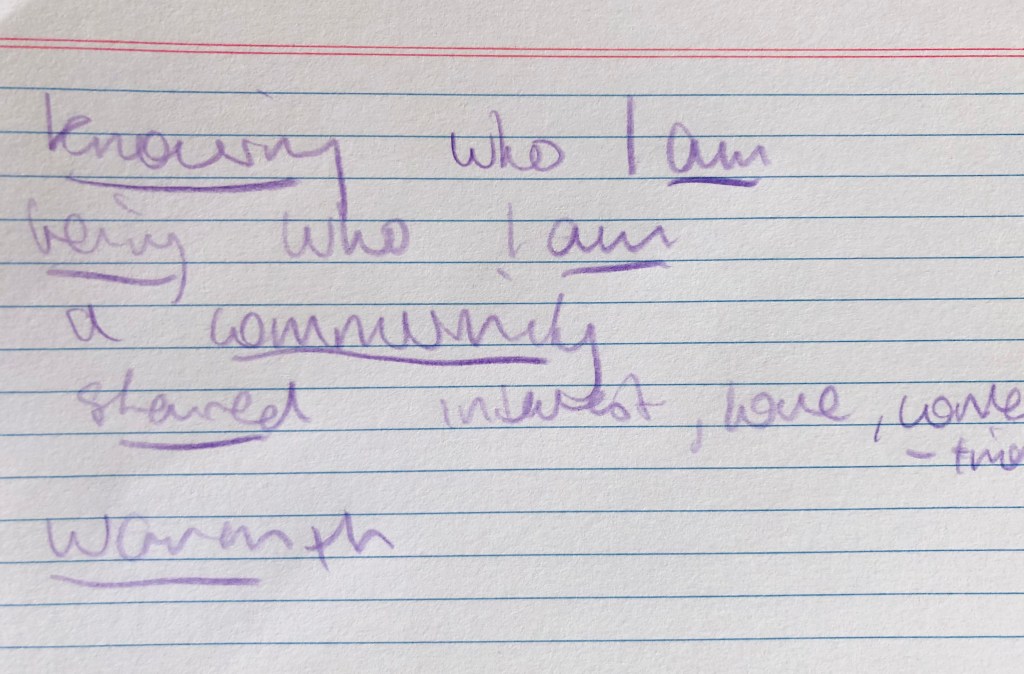 knowing who I am
being who I am
a community
shared interest, love,
warmth